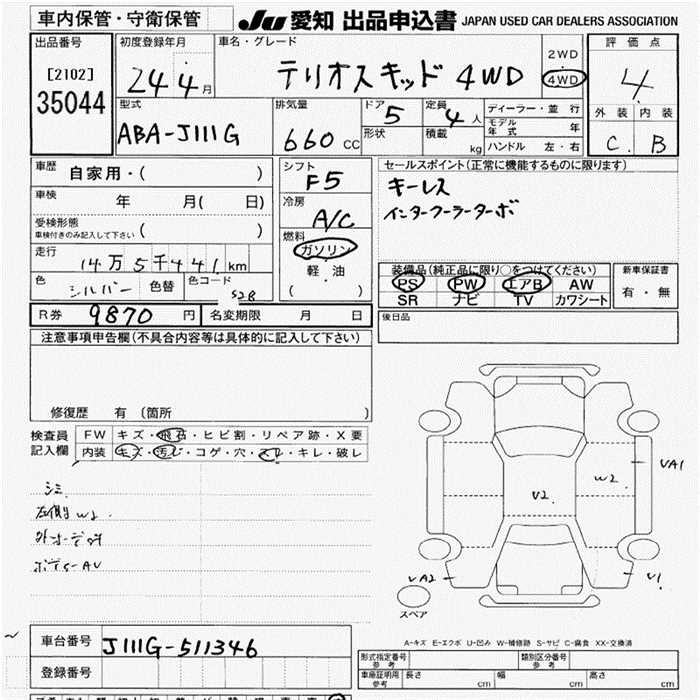 車内保管・守衛保管
JU 愛知 出品申込書 JAPAN USED CAR DEALERS ASSOCIATION
出品番号 初度登録年月 車名・グレード 評価点
[2102] 35044
24年4月
テリオスキッド 4WD
2WD
4WD
4
型式 排気量 ドア 定員 ディーラー・並行 外装 内装
ABA-J111G
660 CC
5
4人
形状 積載 kg
モデル年式 年
ハンドル 左・右
C B
車歴 自家用・( )
シフト F5
セールスポイント(正常に機能するものに限ります)
キーレス
インタークーラーターボ
車検 年 月( 日)
冷房 A/C
受検形態 ( )
車検付きのみ記入して下さい
燃料 ガソリン
・
軽・油
( )
走行 14万5千441km
色 シルバー 色替 色コード S28
装備品(純正品に限り○をつけてください) 新車保証書
PS PW エアB AW 有・無
SR ナビ TV カワシート
R券 9870円 名変期限 月 日
後日品
注意事項申告欄(不具合内容等は具体的に記入して下さい)
修復歴 有 (箇所 )
検査員記入欄
FW キズ・飛石・ヒビ割・リペア跡・X要
内装 キズ・汚じ・コゲ・穴・スレ・キレ・破レ
シミ
左側W2
ボディーAU
VA1
W2
V2.
VA2
V1
スペア
A-キズ E-エクボ U-凹み W-補修跡 S-サビ C-腐食 XX-交換済
車台番号 J111G-511346
登録番号
形式指定番号 参考 類別区分番号 参考
車庫証明用 参考 長さ cm 幅 cm 高さ cm